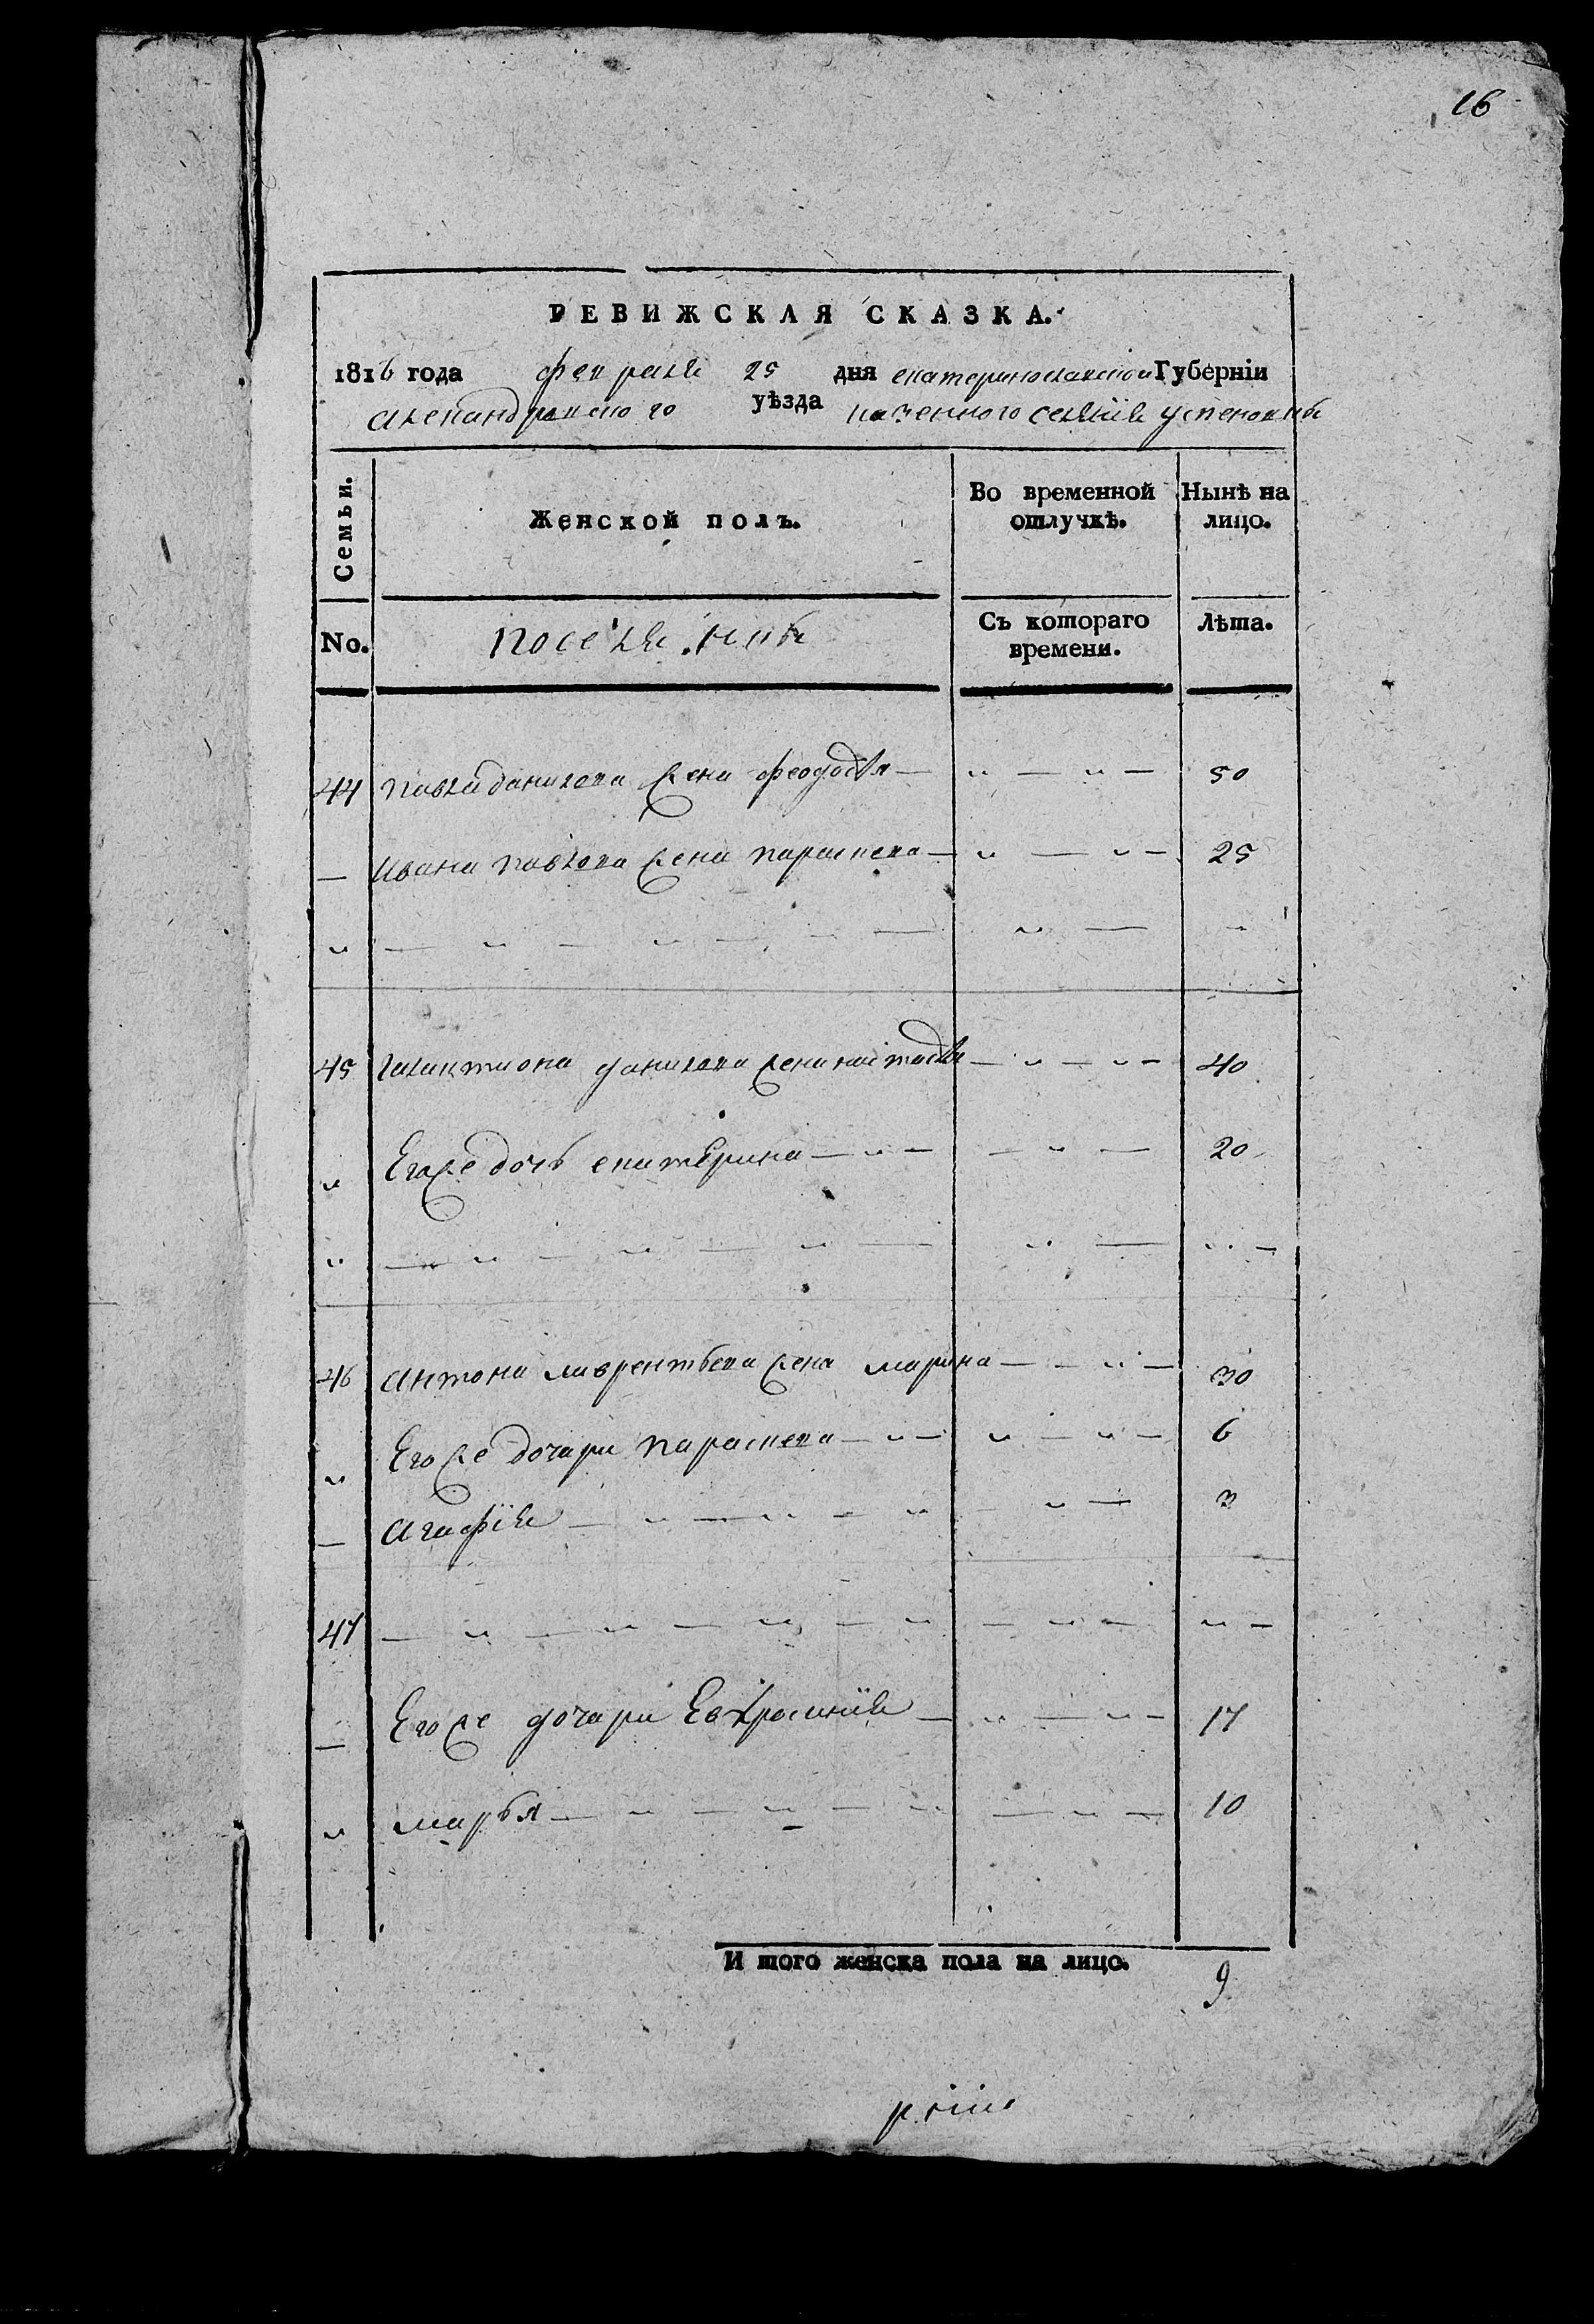 16
РЕВИЖСКАЯ СКАЗКА.
1816 года февраля 25 дня екатеринославской Губерніи
александровского уѣзда казенного селенія успеновки
Семьи.
Женской полъ.
Во временной отлучкѣ.
Нынѣ на лицо.
No.
поселянки
Съ котораго времени.
Лѣта.
44 павла данилова жена феодосья — " — " — 50
— Ивана павлова жена параскева — " — " — 25
" — " — " — " — — " — "
45 галактиона данилова жена настасья — " — " — 40
" Его же дочь екатерина — " — — " — 20
" — " — " — " — " — " —
46 антона лаврентьева жена марина — — " — 30
" Его же дочери параскева — " — " — " — 6
— агафія — " — " — " — " — 3
47 — " — " — " — " — " — " —
— Его же дочери Евфросинія — " — " — 17
" марья — " — " — " — " — 10
И того женска пола на лицо. 9